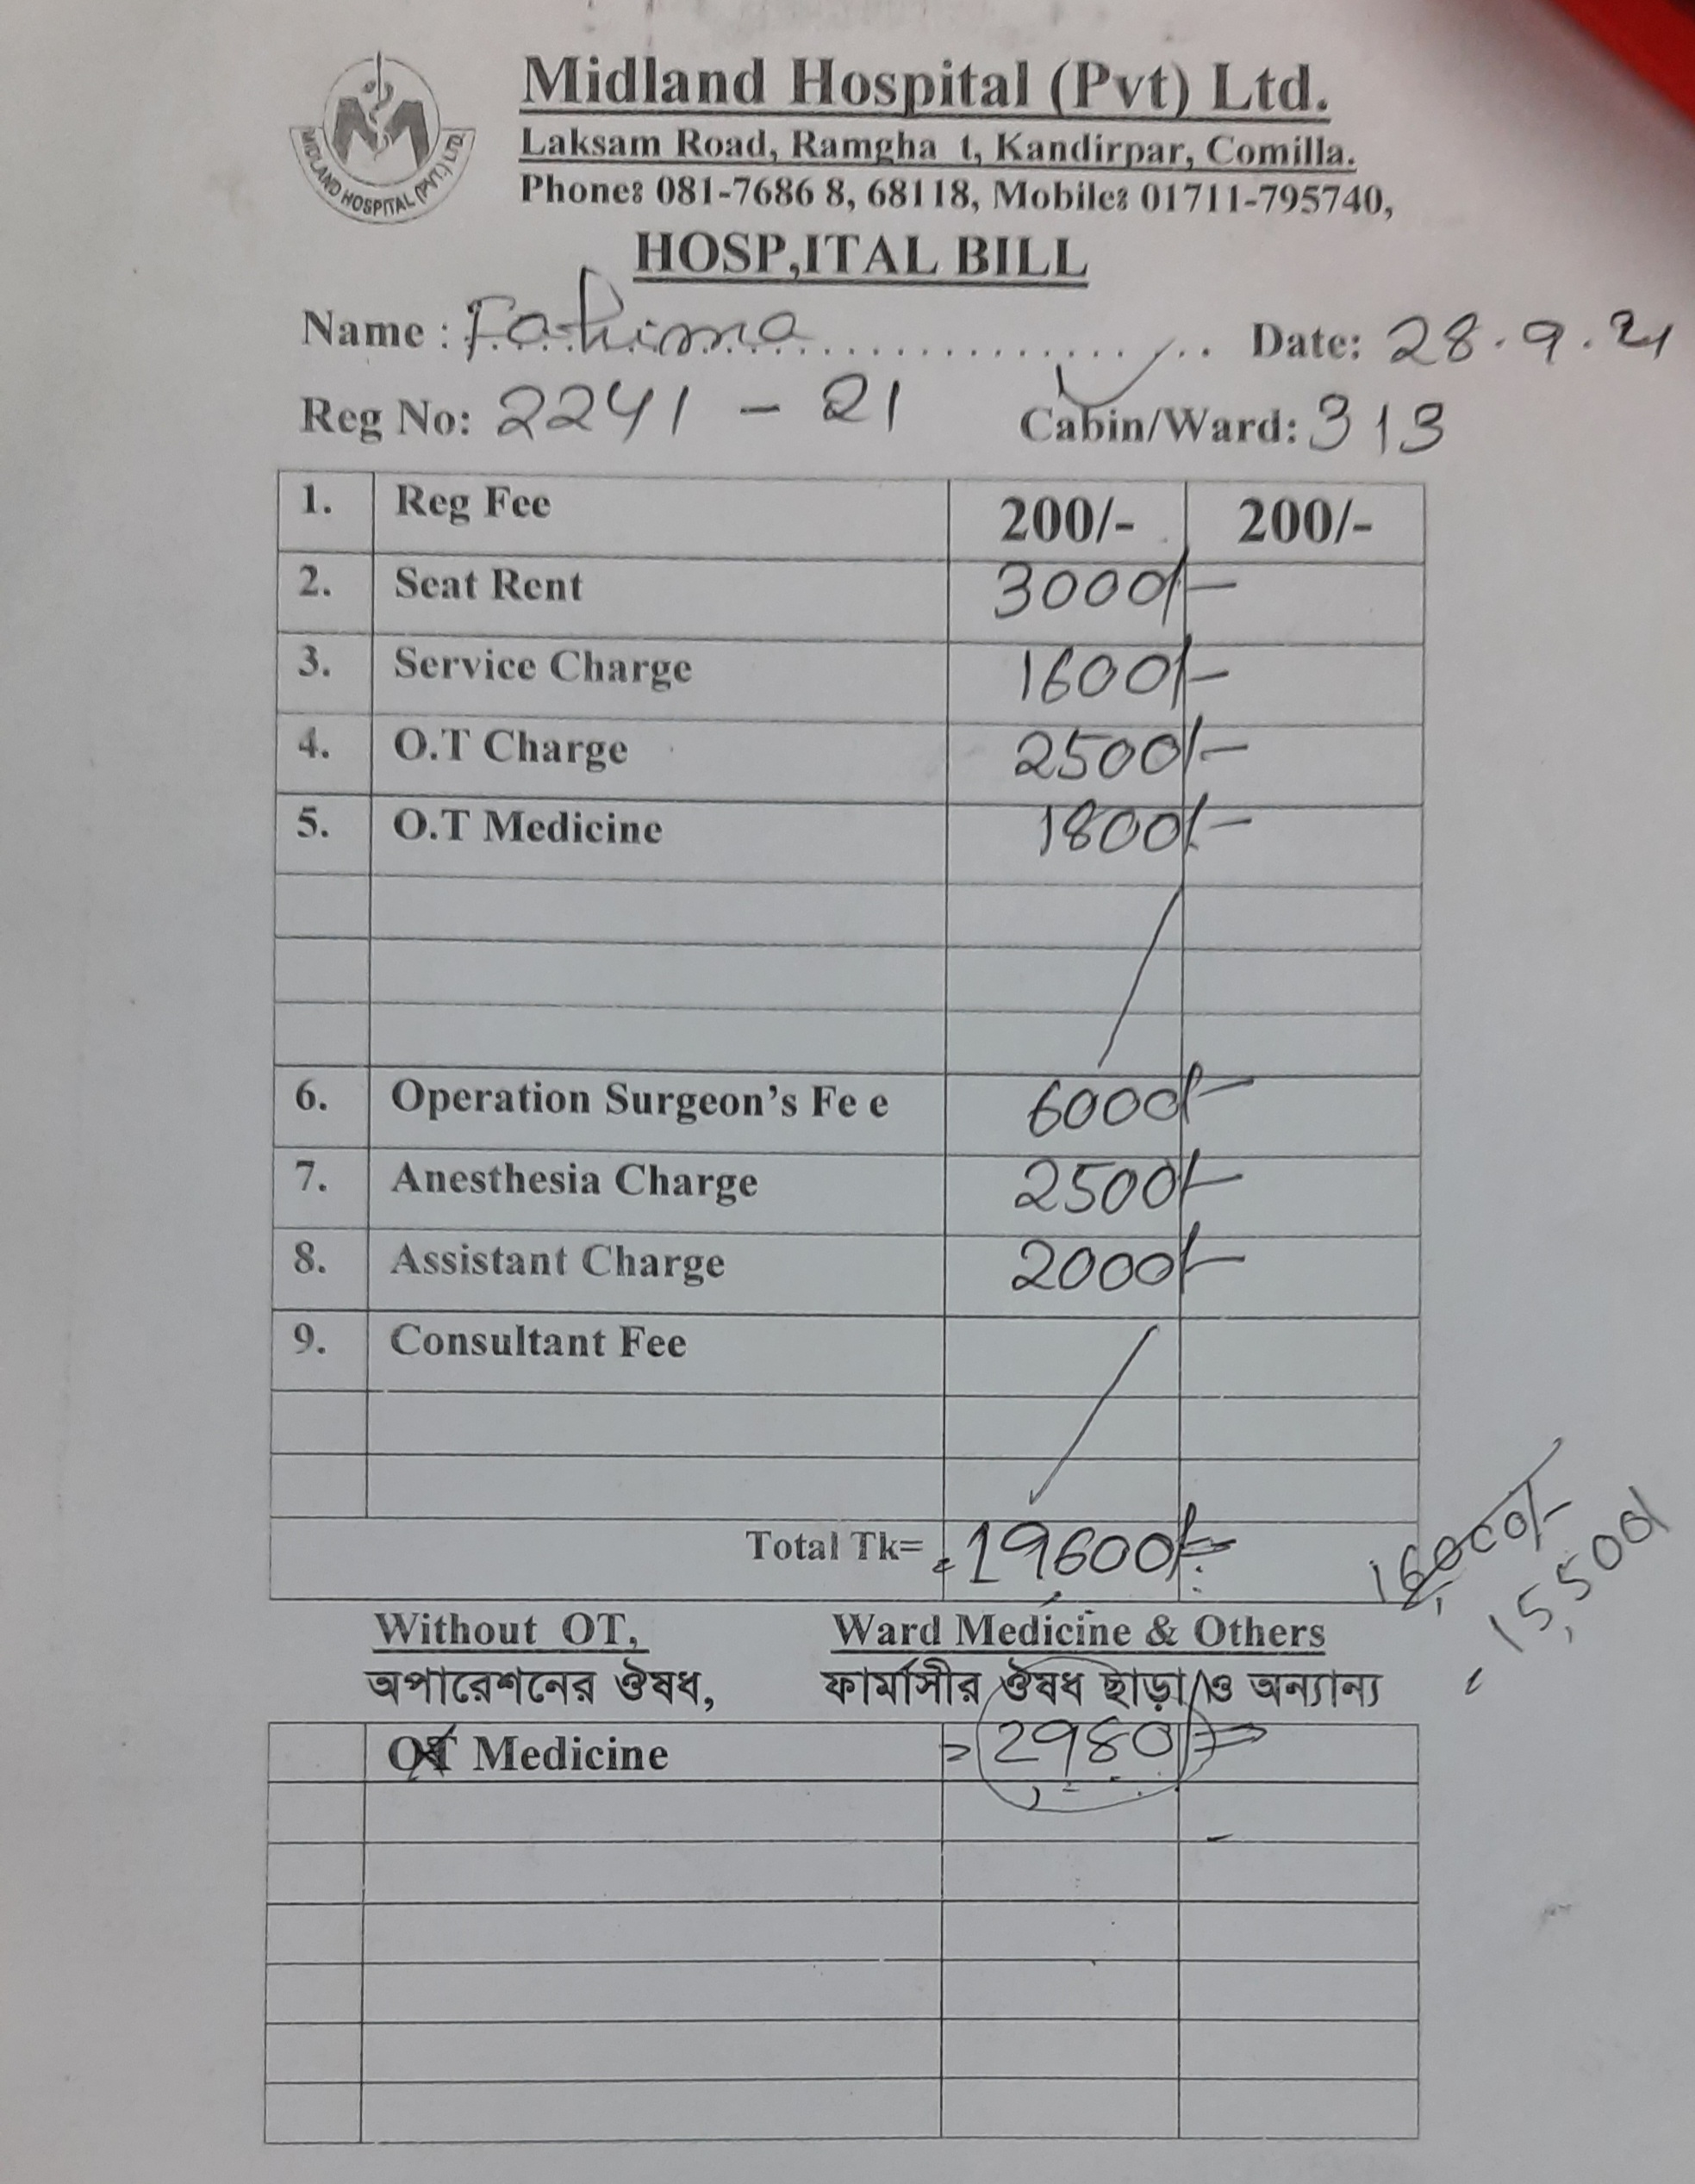 Midland Hospital (Pvt) Ltd.
MIDLAND HOSPITAL (PVT.) LTD.
Laksam Road, Ramgha t, Kandirpar, Comilla.
Phone: 081-7686 8, 68118, Mobile: 01711-795740,
HOSP,ITAL BILL
Name : Fahima Date: 28.9.21
Reg No: 2241 - 21 Cabin/Ward: 313
1. Reg Fee 200/- 200/-
2. Seat Rent 3000/-
3. Service Charge 1600/-
4. O.T Charge 2500/-
5. O.T Medicine 1800/-
6. Operation Surgeon's Fe e 6000/-
7. Anesthesia Charge 2500/-
8. Assistant Charge 2000/-
9. Consultant Fee
Total Tk= 19,600/=
16,000/-
15,500/
Without OT, Ward Medicine & Others
অপারেশনের ঔষধ, ফার্মাসীর ঔষধ ছাড়া ও অন্যান্য
OT Medicine = 2980/=